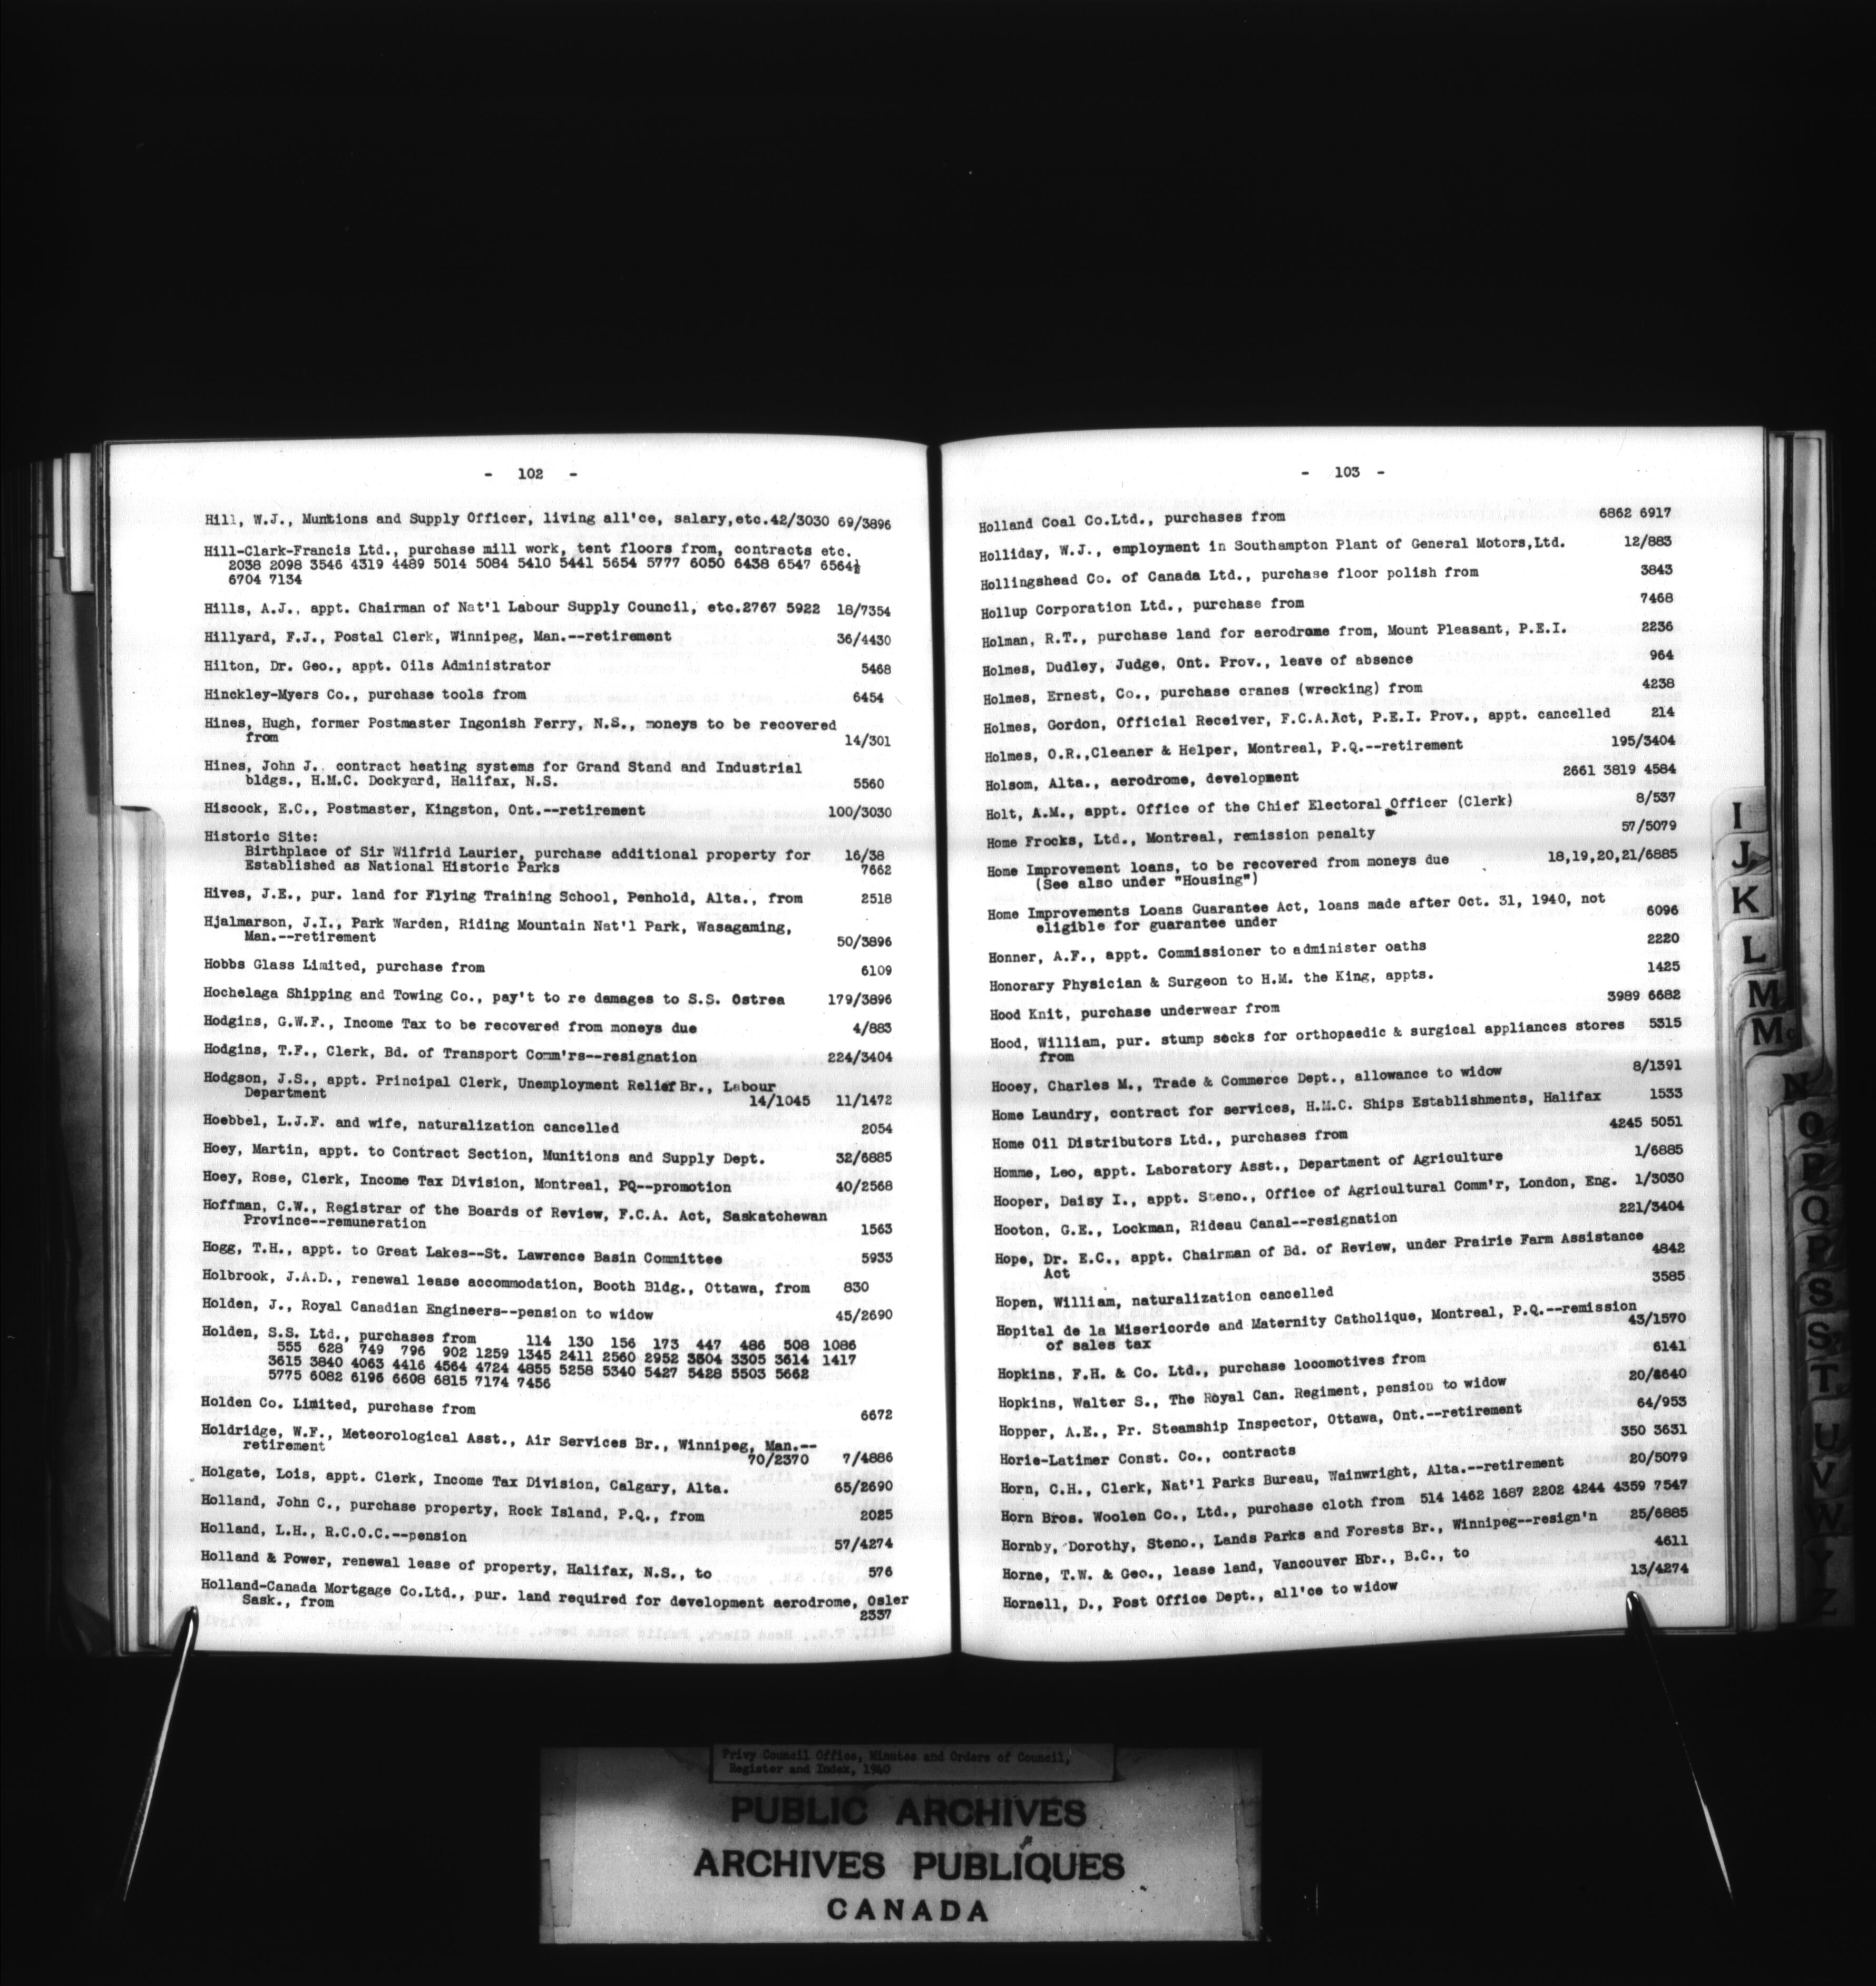 - 102 -
Hill, W.J., Muntions and Supply Officer, living all'ce, salary,etc.42/3030 69/3896
Hill-Clark-Francis Ltd., purchase mill work, tent floors from, contracts etc.
2038 2098 3546 4319 4489 5014 5084 5410 5441 5654 5777 6050 6438 6547 6564½
6704 7134
Hills, A.J., appt. Chairman of Nat'l Labour Supply Council, etc.2767 5922 18/7354
Hillyard, F.J., Postal Clerk, Winnipeg, Man.--retirement 36/4430
Hilton, Dr. Geo., appt. Oils Administrator 5468
Hinckley-Myers Co., purchase tools from 6454
Hines, Hugh, former Postmaster Ingonish Ferry, N.S., moneys to be recovered
from 14/301
Hines, John J., contract heating systems for Grand Stand and Industrial
bldgs., H.M.C. Dockyard, Halifax, N.S. 5560
Hiscock, E.C., Postmaster, Kingston, Ont.--retirement 100/3030
Historic Site:
Birthplace of Sir Wilfrid Laurier, purchase additional property for 16/38
Established as National Historic Parks 7662
Hives, J.E., pur. land for Flying Training School, Penhold, Alta., from 2518
Hjalmarson, J.I., Park Warden, Riding Mountain Nat'l Park, Wasagaming,
Man.--retirement 50/3896
Hobbs Glass Limited, purchase from 6109
Hochelaga Shipping and Towing Co., pay't to re damages to S.S. Ostrea 179/3896
Hodgins, G.W.F., Income Tax to be recovered from moneys due 4/883
Hodgins, T.F., Clerk, Bd. of Transport Comm'rs--resignation 224/3404
Hodgson, J.S., appt. Principal Clerk, Unemployment Relief Br., Labour
Department 14/1045 11/1472
Hoebbel, L.J.F. and wife, naturalization cancelled 2054
Hoey, Martin, appt. to Contract Section, Munitions and Supply Dept. 32/6885
Hoey, Rose, Clerk, Income Tax Division, Montreal, PQ--promotion 40/2568
Hoffman, C.W., Registrar of the Boards of Review, F.C.A. Act, Saskatchewan
Province--remuneration 1563
Hogg, T.H., appt. to Great Lakes--St. Lawrence Basin Committee 5933
Holbrook, J.A.D., renewal lease accommodation, Booth Bldg., Ottawa, from 830
Holden, J., Royal Canadian Engineers--pension to widow 45/2690
Holden, S.S. Ltd., purchases from 114 130 156 173 447 486 508 1086
555 628 749 796 902 1259 1345 2411 2560 2952 3304 3305 3614 1417
3615 3840 4063 4416 4564 4724 4855 5258 5340 5427 5428 5503 5662
5775 6082 6196 6608 6815 7174 7456
Holden Co. Limited, purchase from 6672
Holdridge, W.F., Meteorological Asst., Air Services Br., Winnipeg, Man.--
retirement 70/2370 7/4886
Holgate, Lois, appt. Clerk, Income Tax Division, Calgary, Alta. 65/2690
Holland, John C., purchase property, Rock Island, P.Q., from 2025
Holland, L.H., R.C.O.C.--pension 57/4274
Holland & Power, renewal lease of property, Halifax, N.S., to 576
Holland-Canada Mortgage Co.Ltd., pur. land required for development aerodrome, Osler
Sask., from 2337
- 103 -
Holland Coal Co.Ltd., purchases from 6862 6917
Holliday, W.J., employment in Southampton Plant of General Motors,Ltd. 12/883
Hollingshead Co. of Canada Ltd., purchase floor polish from 3843
Hollup Corporation Ltd., purchase from 7468
Holman, R.T., purchase land for aerodrome from, Mount Pleasant, P.E.I. 2236
Holmes, Dudley, Judge, Ont. Prov., leave of absence 964
Holmes, Ernest, Co., purchase cranes (wrecking) from 4238
Holmes, Gordon, Official Receiver, F.C.A.Act, P.E.I. Prov., appt. cancelled 214
Holmes, O.R.,Cleaner & Helper, Montreal, P.Q.--retirement 195/3404
Holsom, Alta., aerodrome, development 2661 3819 4584
Holt, A.M., appt. Office of the Chief Electoral Officer (Clerk) 8/537
Home Frocks, Ltd., Montreal, remission penalty 57/5079
Home Improvement loans, to be recovered from moneys due 18,19,20,21/6885
(See also under "Housing")
Home Improvements Loans Guarantee Act, loans made after Oct. 31, 1940, not
eligible for guarantee under 6096
Honner, A.F., appt. Commissioner to administer oaths 2220
Honorary Physician & Surgeon to H.M. the King, appts. 1425
Hood Knit, purchase underwear from 3989 6682
Hood, William, pur. stump socks for orthopaedic & surgical appliances stores 5315
from
Hooey, Charles M., Trade & Commerce Dept., allowance to widow 8/1391
Home Laundry, contract for services, H.M.C. Ships Establishments, Halifax 1533
Home Oil Distributors Ltd., purchases from 4245 5051
Homme, Leo, appt. Laboratory Asst., Department of Agriculture 1/6885
Hooper, Daisy I., appt. Steno., Office of Agricultural Comm'r, London, Eng. 1/3030
Hooton, G.E., Lockman, Rideau Canal--resignation 221/3404
Hope, Dr. E.C., appt. Chairman of Bd. of Review, under Prairie Farm Assistance
Act 4842
Hopen, William, naturalization cancelled 3585
Hopital de la Misericorde and Maternity Catholique, Montreal, P.Q.--remission
of sales tax 43/1570
Hopkins, F.H. & Co. Ltd., purchase locomotives from 6141
Hopkins, Walter S., The Royal Can. Regiment, pension to widow 20/4640
Hopper, A.E., Pr. Steamship Inspector, Ottawa, Ont.--retirement 64/953
Horie-Latimer Const. Co., contracts 350 3631
Horn, C.H., Clerk, Nat'l Parks Bureau, Wainwright, Alta.--retirement 20/5079
Horn Bros. Woolen Co., Ltd., purchase cloth from 514 1462 1687 2202 4244 4359 7547
Hornby, Dorothy, Steno., Lands Parks and Forests Br., Winnipeg--resign'n 25/6885
Horne, T.W. & Geo., lease land, Vancouver Hbr., B.C., to 4611
Hornell, D., Post Office Dept., all'ce to widow 13/4274
I
J
K
L
M
Mc
N
O
P
Q
R
S
S
T
U
V
W
Y
Z
Privy Council Office, Minutes and Orders of Council,
Register and Index, 1940
PUBLIC ARCHIVES
ARCHIVES PUBLIQUES
CANADA